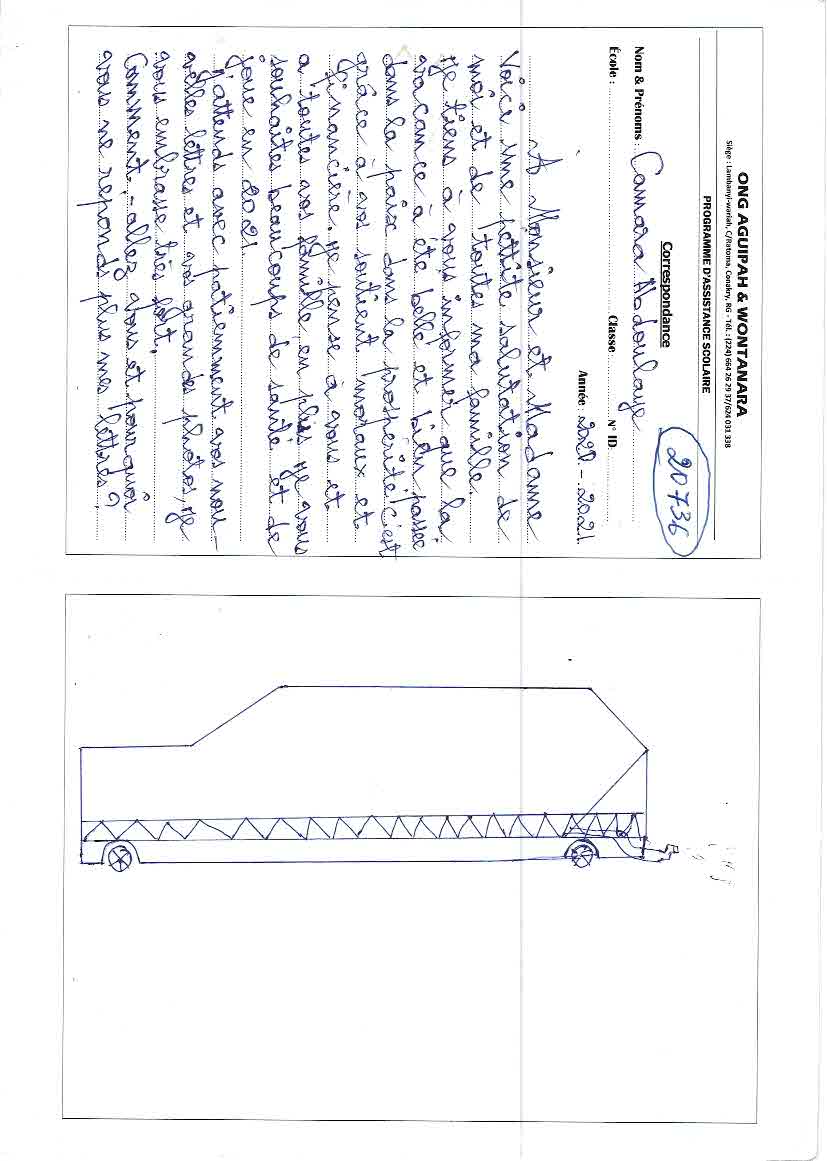 ONG AGUIPAH & WONTANARA
Siège : Lambanyi-wariah, C/Ratoma, Conakry, RG - Tél. : (224) 664 26 29 37/624 031 338
PROGRAMME D'ASSISTANCE SCOLAIRE
20736
Correspondance
Nom & Prénoms : Camara Abdoulaye
École : Classe N° ID
Année 2020 - 2021
A Monsieur et Madame
Voici une pettite salutation de
moi et de toutes ma famille.
Je tiens à vous informer que la
vacance à été belle et bien passée
dans la paix dans la prosperité! c'est
grâce à vos soutient moraux et
financière. Je pense à vous et
a toutes vos famille, en plus je vous
souhaites beaucoups de santé et de
joue en 2021.
J'attends avec patiemment vos nou-
velles lettres et vos grandes photos, je
vous embrasse très fort.
Comment - allez vous et pourquoi
vous ne reponds plus mes lettres ?